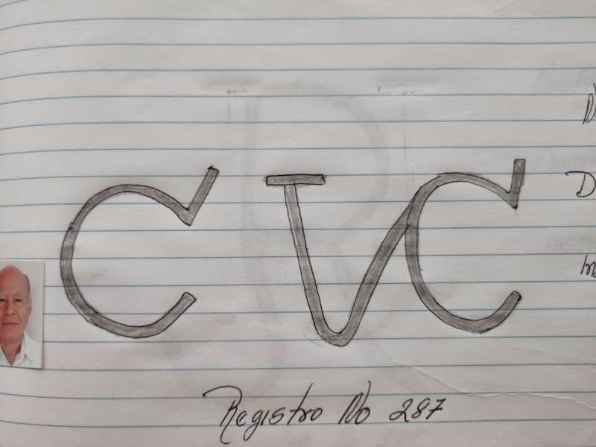 CVC
Registro No 287